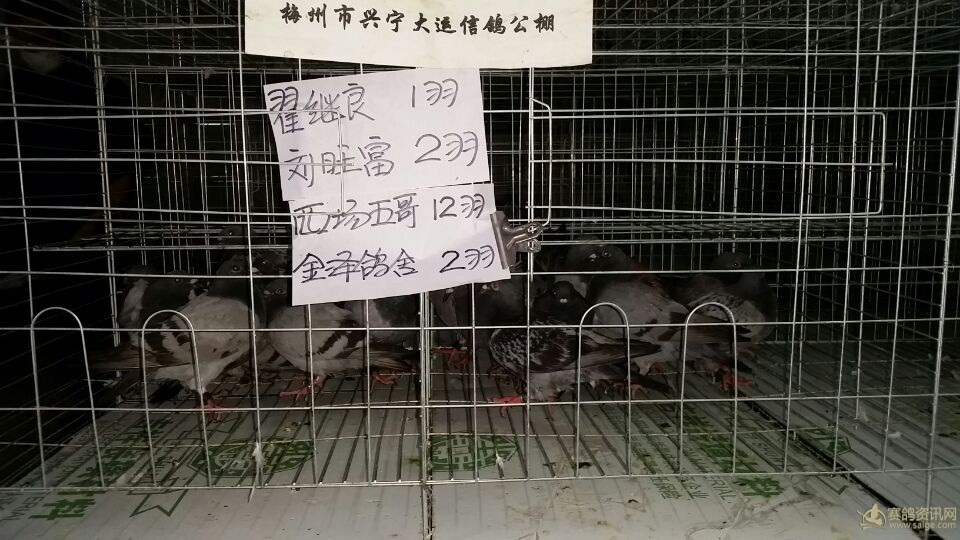 梅州市兴宁大运信鸽公棚
翟继良 1羽
刘旺富 2羽
西场五哥 12羽
金泽鸽舍 2羽
赛鸽资讯网
www.saige.com